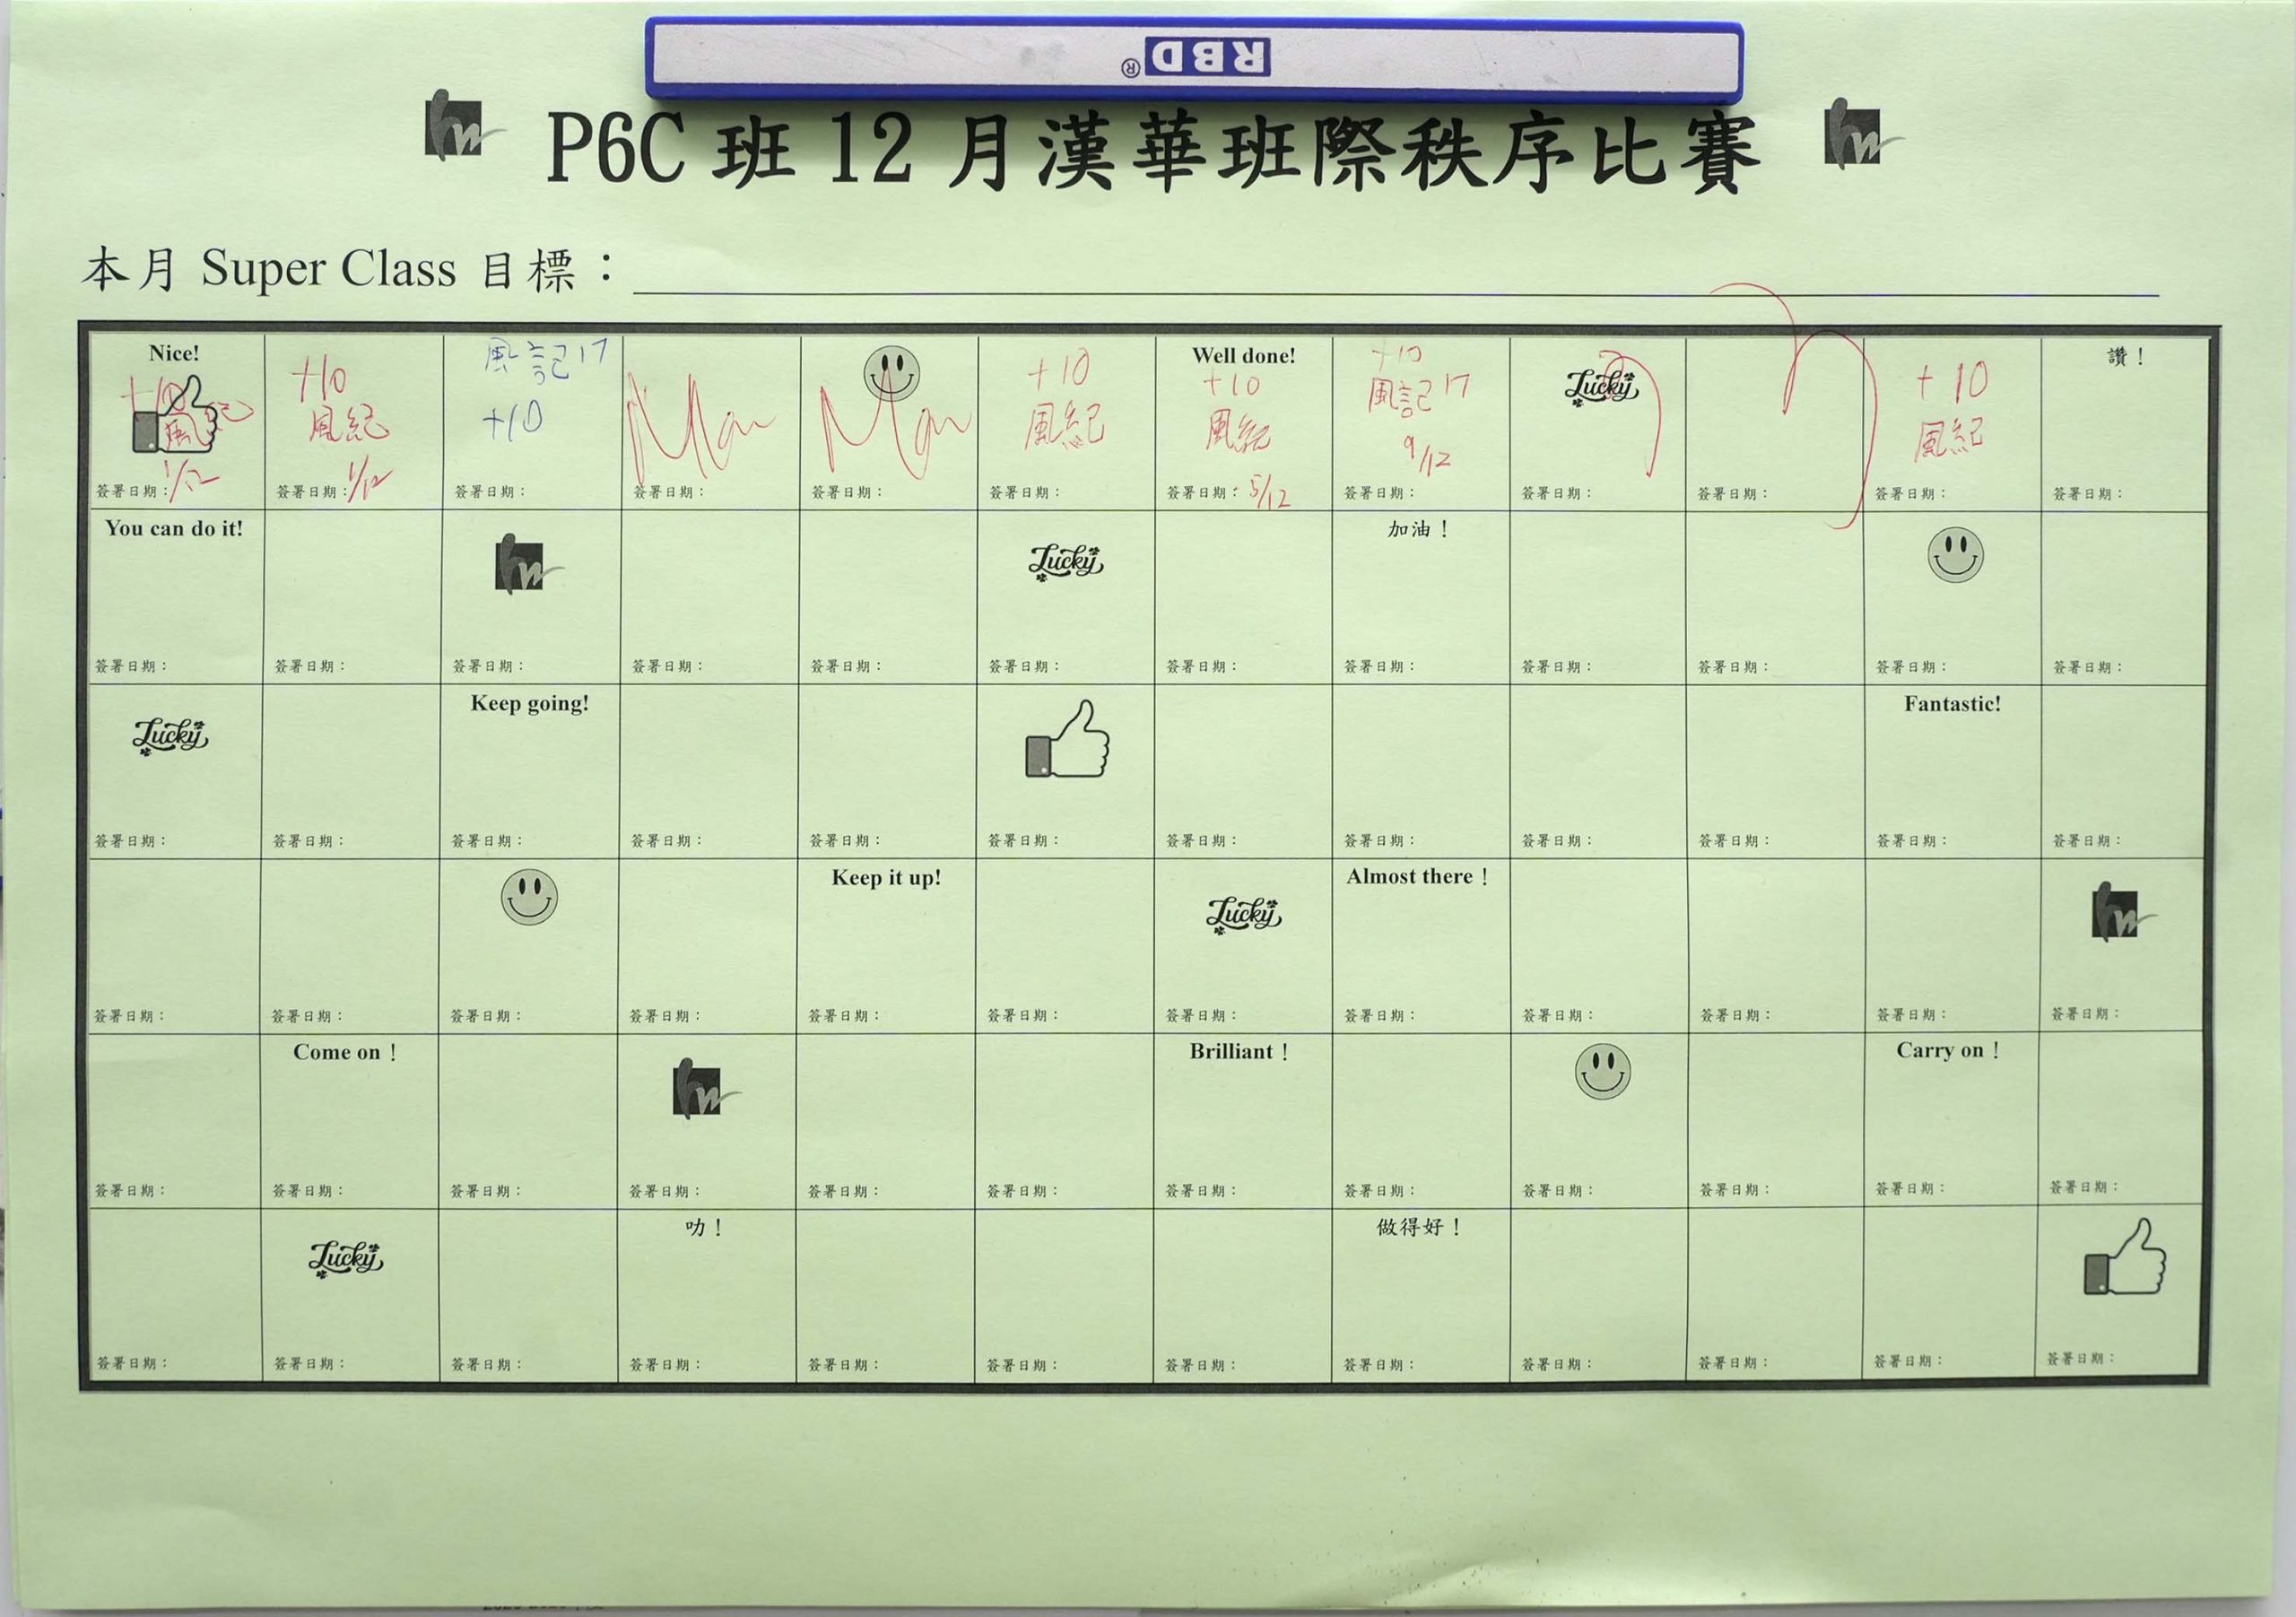 RBD®
P6C 班 12 月漢華班際秩序比賽
本月 Super Class 目標：
Nice! 風記17 Well done! +10 讚！
+10 +10 +10 +10 +10 風記17 Lucky +10
風紀 風紀 Man Man 風紀 風紀 9/12 風紀
簽署日期：1/12 簽署日期：1/12 簽署日期： 簽署日期： 簽署日期： 簽署日期： 簽署日期：5/12 簽署日期： 簽署日期： 簽署日期： 簽署日期： 簽署日期：
You can do it! hw Lucky 加油！
簽署日期： 簽署日期： 簽署日期： 簽署日期： 簽署日期： 簽署日期： 簽署日期： 簽署日期： 簽署日期： 簽署日期： 簽署日期： 簽署日期：
Lucky Keep going! Fantastic!
簽署日期： 簽署日期： 簽署日期： 簽署日期： 簽署日期： 簽署日期： 簽署日期： 簽署日期： 簽署日期： 簽署日期： 簽署日期： 簽署日期：
Keep it up! Lucky Almost there！ hw
簽署日期： 簽署日期： 簽署日期： 簽署日期： 簽署日期： 簽署日期： 簽署日期： 簽署日期： 簽署日期： 簽署日期： 簽署日期： 簽署日期：
Come on！ hw Brilliant！ Carry on！
簽署日期： 簽署日期： 簽署日期： 簽署日期： 簽署日期： 簽署日期： 簽署日期： 簽署日期： 簽署日期： 簽署日期： 簽署日期： 簽署日期：
Lucky 叻！ 做得好！
簽署日期： 簽署日期： 簽署日期： 簽署日期： 簽署日期： 簽署日期： 簽署日期： 簽署日期： 簽署日期： 簽署日期： 簽署日期： 簽署日期：